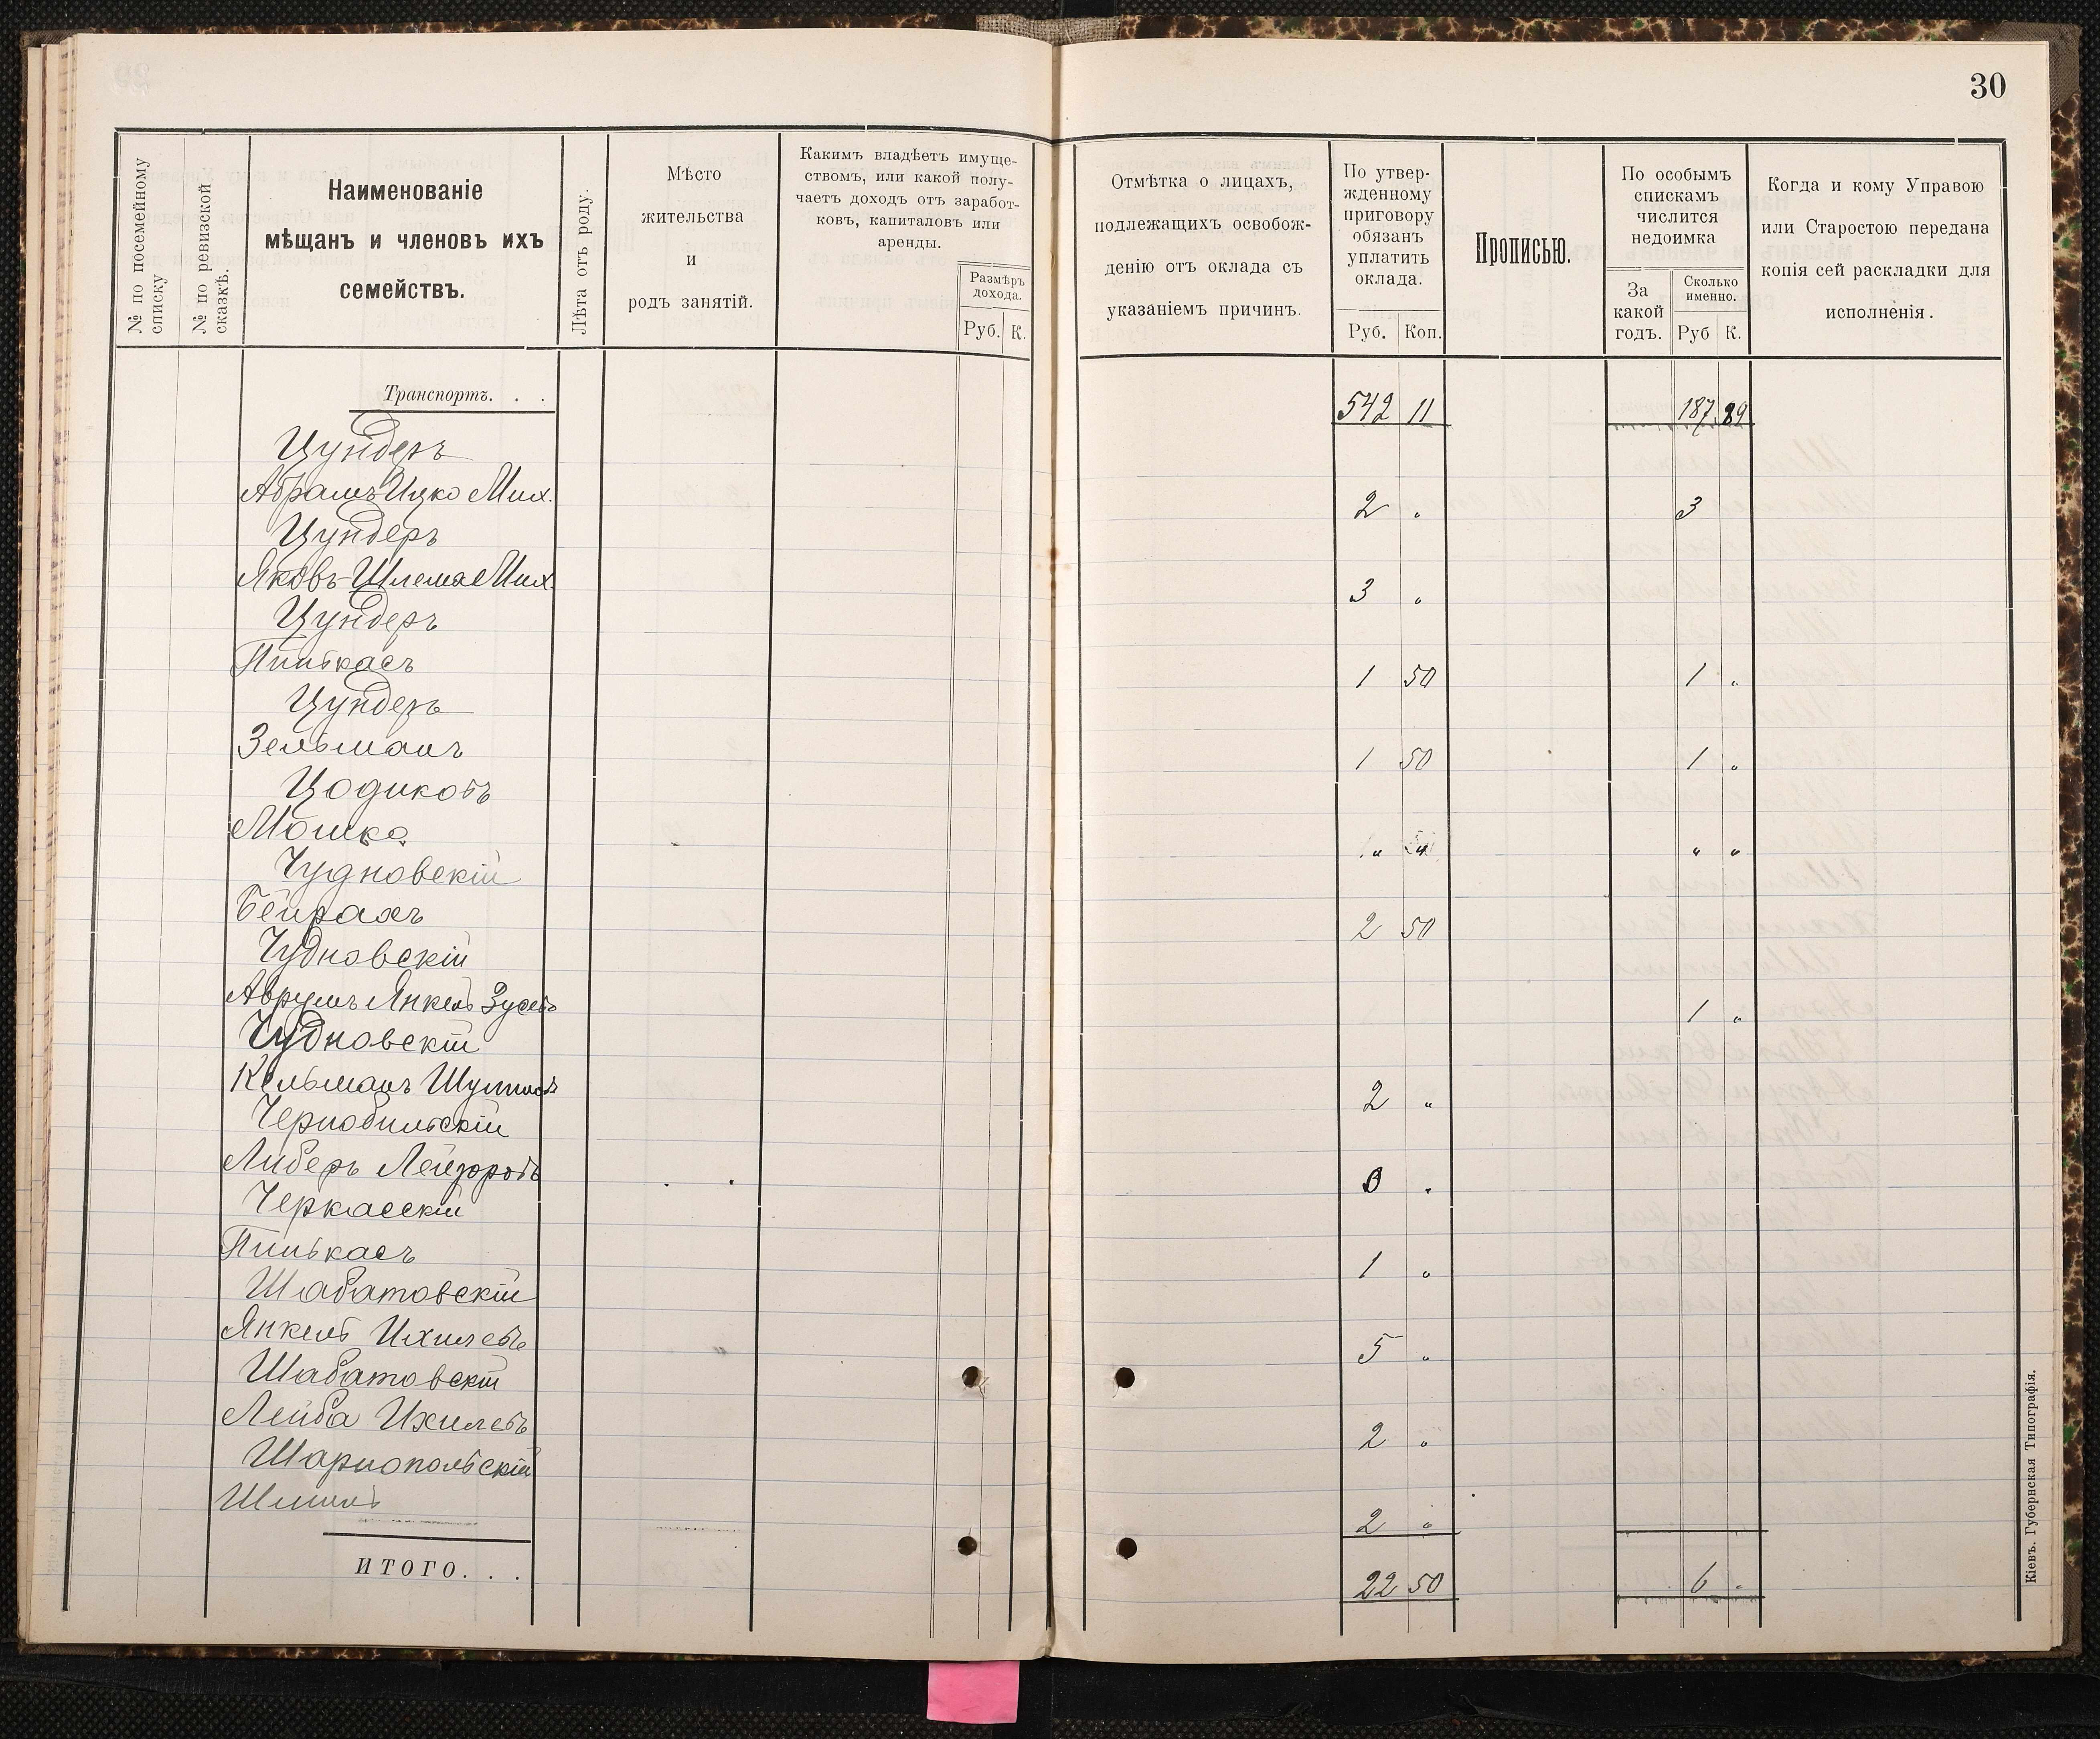 30
№ по посемейному списку
№ по ревизской сказкѣ.
Наименованіе
мѣщанъ и членовъ ихъ
семействъ.
Лѣта отъ роду.
Мѣсто
жительства
и
родъ занятій.
Какимъ владѣетъ имуще-
ствомъ, или какой полу-
чаетъ доходъ отъ заработ-
ковъ, капиталовъ или
аренды.
Размѣръ
дохода.
Руб. К.
Отмѣтка о лицахъ,
подлежащихъ освобож-
денію отъ оклада съ
указаніемъ причинъ.
По утвер-
жденному
приговору
обязанъ
уплатить
оклада.
Руб. Коп.
Прописью.
По особымъ
спискамъ
числится
недоимка
За
какой
годъ.
Сколько
именно.
Руб К.
Когда и кому Управою
или Старостою передана
копія сей раскладки для
исполненія.
Транспортъ. . . 542 11 187 89
Цундеръ
Абрамъ Ицко Мих. 2 „ 3
Цундеръ
Яковъ-Шлема Мих. 3 „
Цундеръ
Пинькасъ 1 50 1 „
Цундеръ
Зельманъ 1 50 1 „
Цодиковъ
Мошко „ „ „ „
Чудновскій
Бейрахъ 2 50
Чудновскій
Аврумъ Янкель Зусевъ 1 „
Чудновскій
Кельманъ 2 „
Чернобильскій
Либеръ Лейзоровъ 0 „
Черкасскій
Пинькасъ 1 „
Шабатовскій
Янкель Ихилевъ 5 „
Шабатовскій
Лейба Ихилевъ 2 „
Шарнопольскій
2 „
ИТОГО. . . 22 50 6 „
Кіевъ. Губернская Типографія.